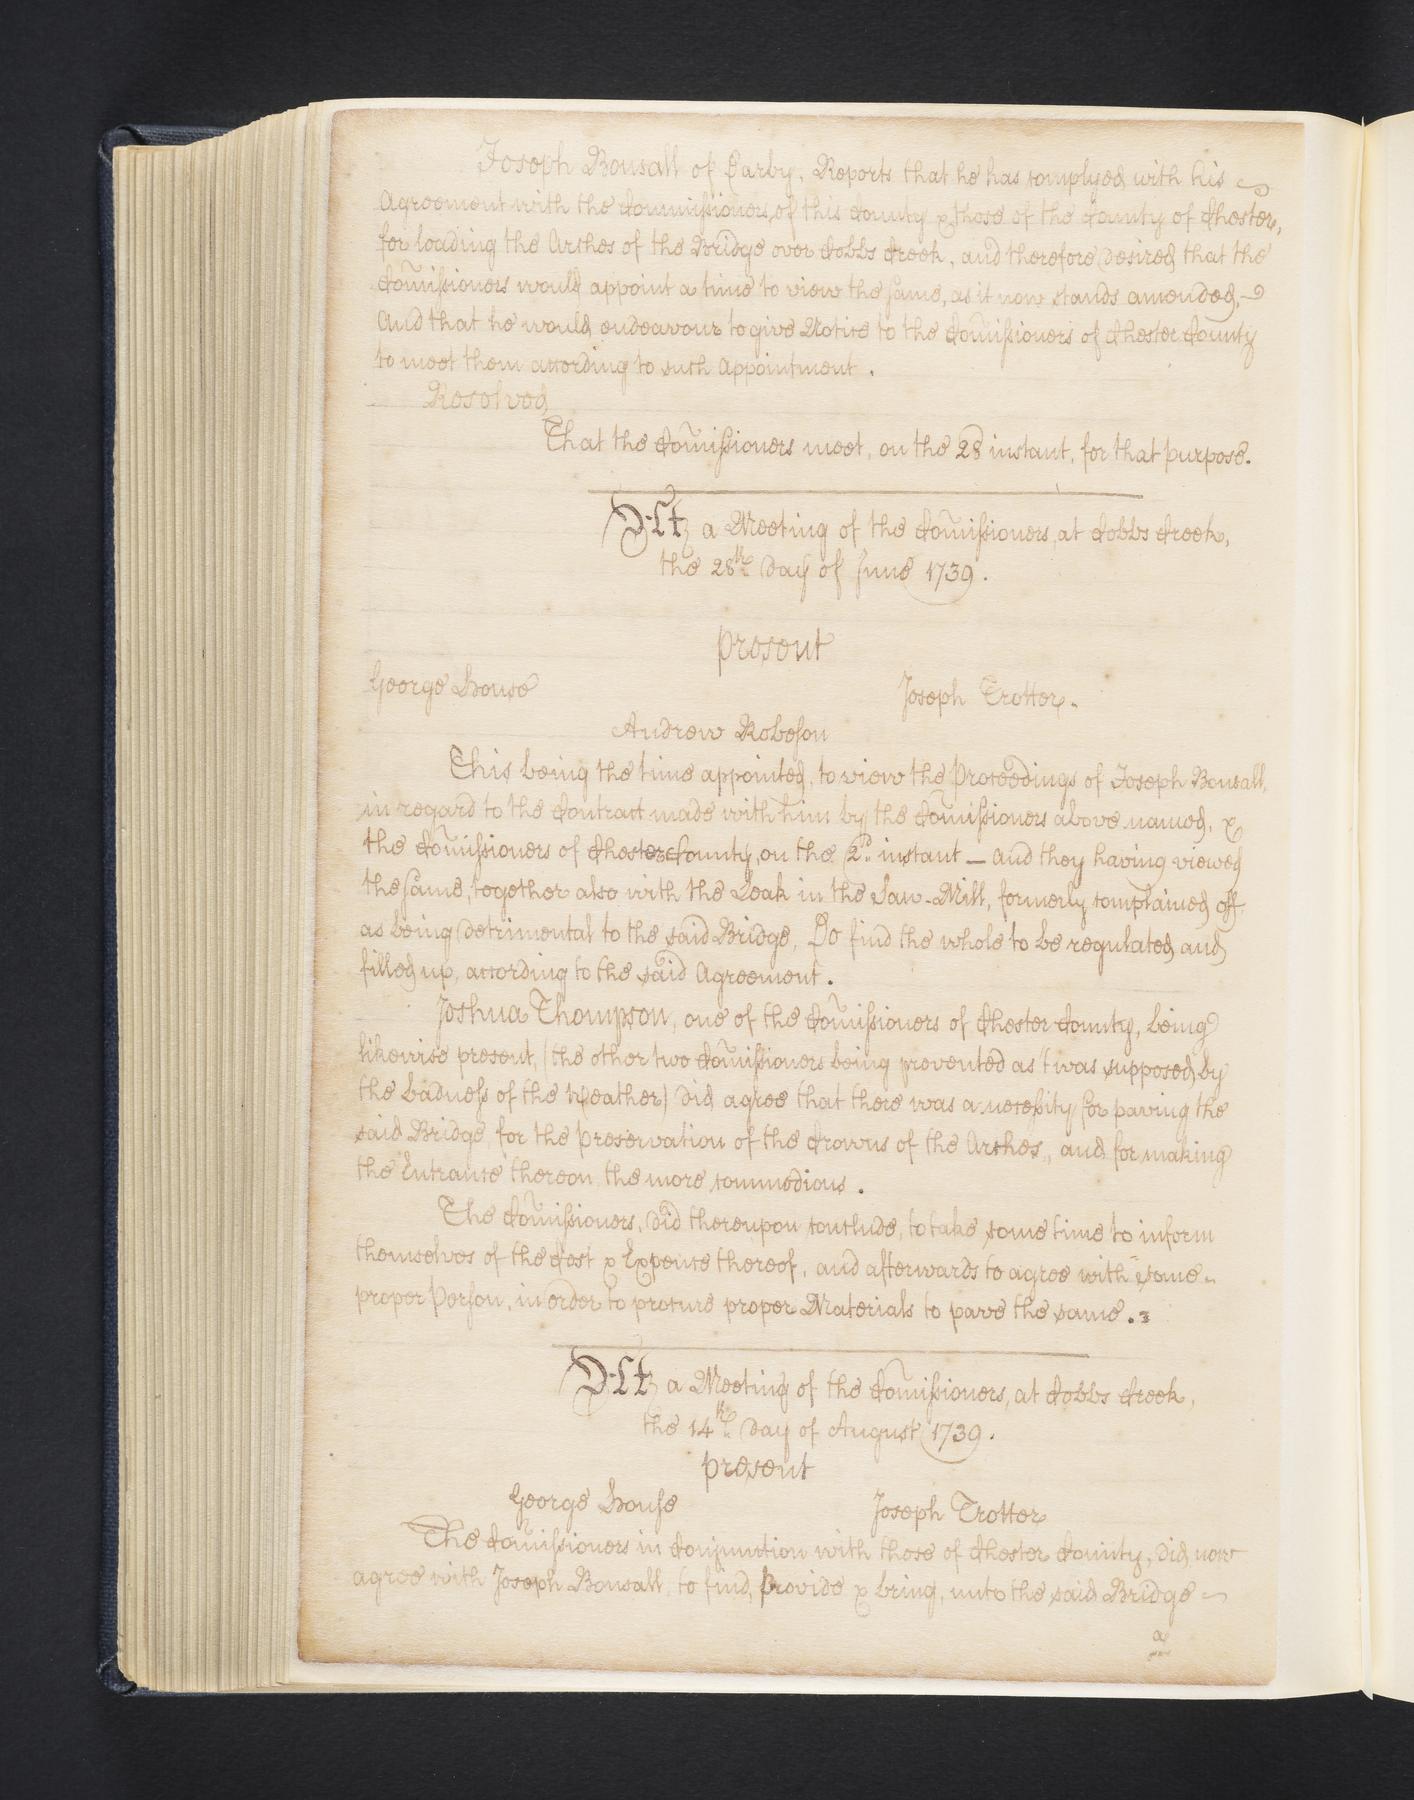 Joseph Bonsall of Darby, Reports that he has complyed with his
Agreement with the Commissioners, of this County & those of the County of Chester,
for loading the Arches of the Bridge over Cobbs Creek, and therefore desired that the
Com̃issioners would appoint a time to view the same, as it now stands amended,
And that he would endeavour to give Notice to the Com̃issioners of Chester County
to meet them according to such Appointment.
Resolved
That the Com̃issioners meet, on the 28 instant, for that purpose.
At a Meeting of the Com̃issioners, at Cobbs Creek,
the 28th Day of June 1739.
Present
George House Joseph Trotter.
Andrew Robeson
This being the time appointed, to view the Proceedings of Joseph Bonsall,
in regard to the Contract made with him by the Com̃issioners above named, &
the Com̃issioners of Chester County, on the 2d. instant — and they having viewed
the same, together also with the Leak in the Saw-Mill, formerly complained off
as being detrimental to the said Bridge, Do find the whole to be regulated and
filled up, according to the said Agreement.
Joshua Thompson, one of the Com̃issioners of Chester County, being
likewise present, (the other two Com̃issioners being prevented as 'twas supposed, by
the badness of the Weather) did agree that there was a necessity for paving the
said Bridge, for the Preservation of the Crowns of the Arches, and for making
the Entrance thereon the more commodious.
The Com̃issioners, did thereupon conclude, to take some time to inform
themselves of the Cost & Expence thereof, and afterwards to agree with some
proper Person, in order to procure proper Materials to pave the same.
At a Meeting of the Com̃issioners, at Cobbs Creek,
the 14th Day of August 1739.
Present
George House Joseph Trotter
The Com̃issioners in Conjunction with those of Chester County, did now
agree with Joseph Bonsall, to find, Provide & bring, unto the said Bridge
a